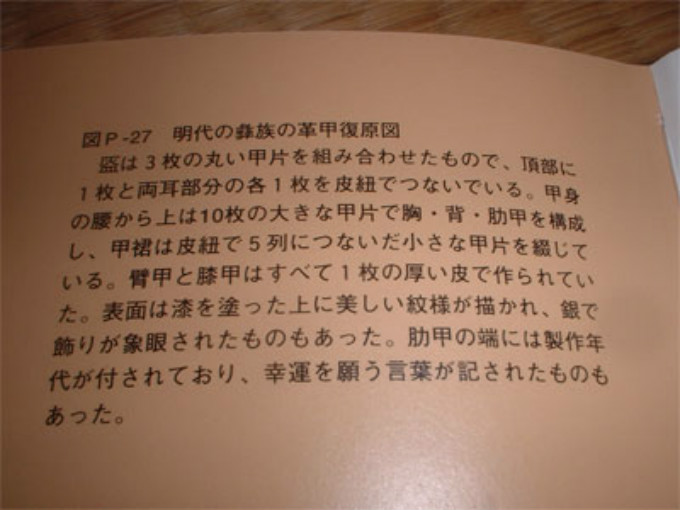 図P-27 明代の彝族の革甲復原図
盔は3枚の丸い甲片を組み合わせたもので、頂部に
1枚と両耳部分の各1枚を皮紐でつないでいる。甲身
の腰から上は10枚の大きな甲片で胸・背・肋甲を構成
し、甲裙は皮紐で5列につないだ小さな甲片を綴じて
いる。臂甲と膝甲はすべて1枚の厚い皮で作られてい
た。表面は漆を塗った上に美しい紋様が描かれ、銀で
飾りが象眼されたものもあった。肋甲の端には製作年
代が付されており、幸運を願う言葉が記されたものも
あった。